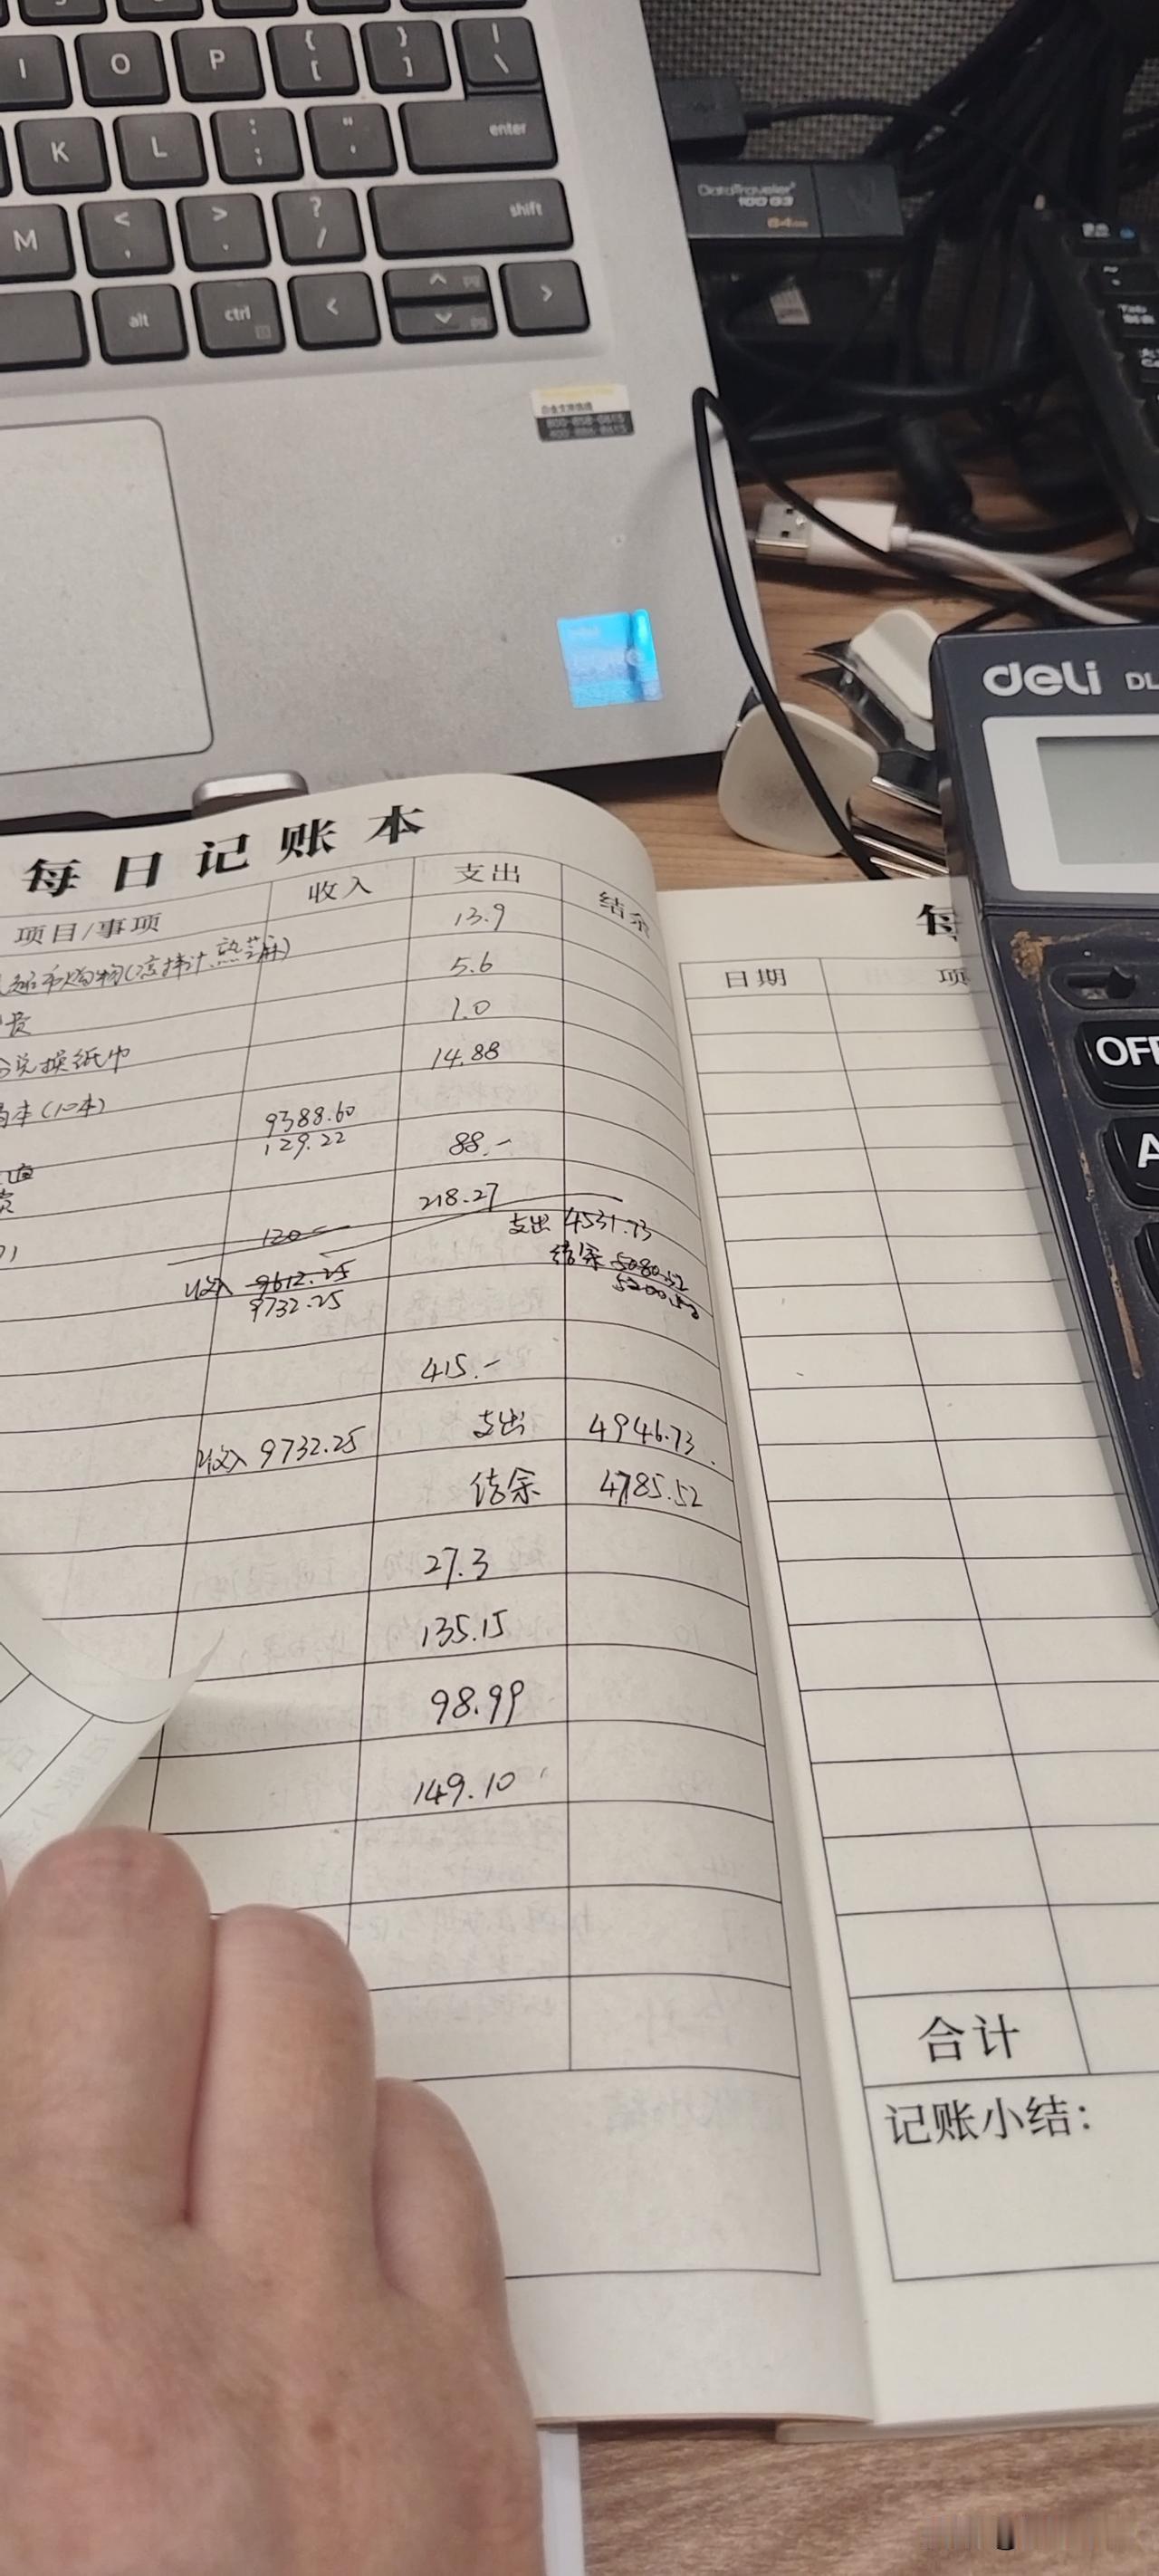 I O P { [ } ] | \
K L : ; " ' enter
M < , > . ? / shift
alt ctrl < >
DataTraveler
100 G3
64GB
Tab
800-858-0615
400-886-0615
deli DL
OFF
A
每日记账本
项目/事项 收入 支出 结余
13.9
超市购物(凉拌汁、熟芝麻) 5.6
费 1.0
兑换纸巾 14.88
本(10本)
9388.60
129.22 88.-
218.27
120
支出 4531.73
收入 9612.25 结余 5080.52
9732.25 5200.52
415.-
收入 9732.25 支出 4946.73
结余 4785.52
27.3
135.15
98.99
149.10
每
日期 项
合计
记账小结: